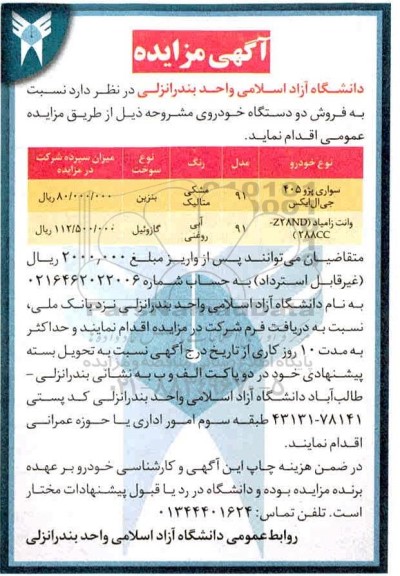 آگهی مزایده
دانشگاه آزاد اسلامی واحد بندرانزلی در نظر دارد نسبت
به فروش دو دستگاه خودروی مشروحه ذیل از طریق مزایده
عمومی اقدام نماید.
نوع خودرو مدل رنگ نوع سوخت میزان سپرده شرکت در مزایده
سواری پژو ۴۰۵ جی‌ال‌ایکس ۹۱ مشکی متالیک بنزین ۸۰/۰۰۰/۰۰۰ ریال
وانت زامیاد (Z28ND-288CC) ۹۱ آبی روغنی گازوئیل ۱۱۲/۵۰۰/۰۰۰ ریال
متقاضیان می‌توانند پس از واریز مبلغ ۲۰۰۰٫۰۰۰ ریال
(غیرقابل استرداد) به حساب شماره ۰۲۱۶۴۶۲۰۲۲۰۰۶
به نام دانشگاه آزاد اسلامی واحد بندرانزلی نزد بانک ملی،
نسبت به دریافت فرم شرکت در مزایده اقدام نمایند و حداکثر
به مدت ۱۰ روز کاری از تاریخ درج آگهی نسبت به تحویل بسته
پیشنهادی خود در دو پاکت الف و ب به نشانی بندرانزلی -
طالب‌آباد دانشگاه آزاد اسلامی واحد بندرانزلی کد پستی
۷۸۱۴۱-۴۳۱۳۱ طبقه سوم امور اداری یا حوزه عمرانی
اقدام نمایند.
در ضمن هزینه چاپ این آگهی و کارشناسی خودرو بر عهده
برنده مزایده بوده و دانشگاه در رد یا قبول پیشنهادات مختار
است. تلفن تماس: ۰۱۳۴۴۴۰۱۶۲۴
روابط عمومی دانشگاه آزاد اسلامی واحد بندرانزلی